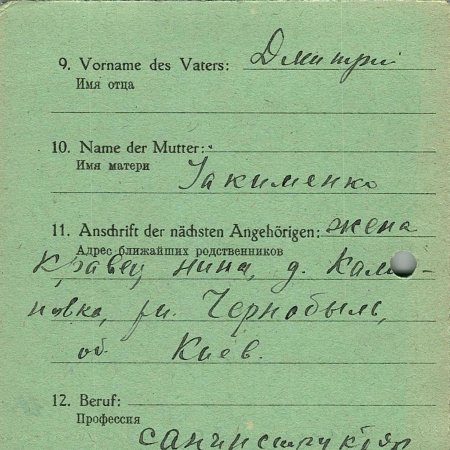 9. Vorname des Vaters: Дмитрий
Имя отца
10. Name der Mutter:
Имя матери
Якименко
11. Anschrift der nächsten Angehörigen: жена
Адрес ближайших родственников
Кравец Нина, д. Кали-
новка, рн. Чернобыль,
об. Киев.
12. Beruf:
Профессия
санинструктор